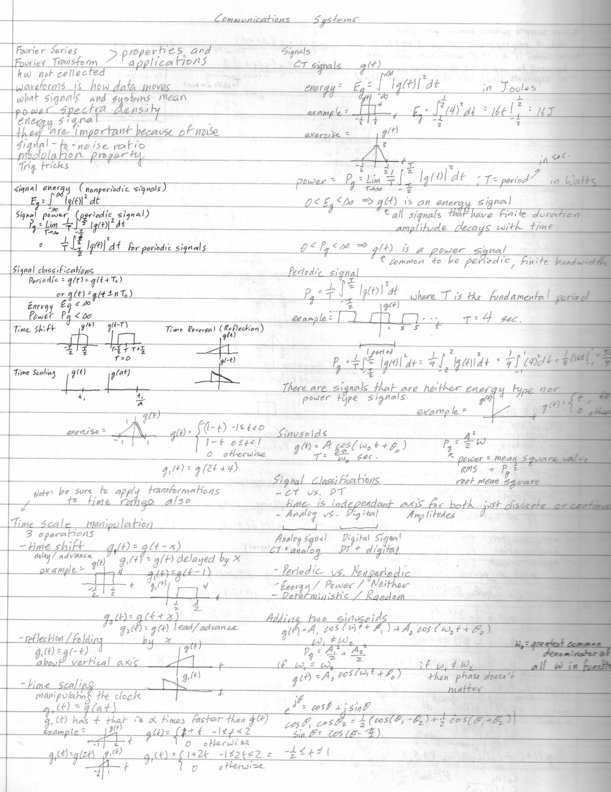 Communications Systems
Fourier Series
Fourier Transform > properties and applications
hw not collected
waveforms is how data moves
what signals and systems mean
power spectra density
energy signal
they are important because of noise
signal-to-noise ratio
modulation property
Trig tricks
signal energy (nonperiodic signals)
Eg = ∫_{-∞}^{∞} |g(t)|² dt
Signal power (periodic signal)
Pg = Lim_{T→∞} 1/T ∫_{-T/2}^{T/2} |g(t)|² dt
= 1/T ∫_{-T/2}^{T/2} |g(t)|² dt for periodic signals
Signal classifications
Periodic = g(t) = g(t+T₀)
or g(t) = g(t ± nT₀)
Energy Eg < ∞
Power Pg < ∞
Time Shift g(t) g(t-T) Time Reversal (Reflection)
g(t)
g(-t)
Time Scaling g(t) g(at)
exercise = g(t)
g(t) = { (1-t) -1≤t≤0
1-t 0≤t<1
0 otherwise
g₁(t) = g(2t+4)
Note: be sure to apply transformations
to time range also
Time scale manipulation
3 operations
- time shift g₁(t) = g(t-x)
delay/advance g₁(t) = g(t) delayed by x
example = g(t) g₁(t) = g(t-1)
g₁(t)
g₂(t) = g(t+x)
g₂(t) = g(t) lead/advance
by x
- reflection/folding
g₁(t) = g(-t)
about vertical axis
g(t)
g₁(t)
- time scaling
manipulating the clock
g₁(t) = g(at)
g₁(t) has t that is α times faster than g(t)
example = g(t) g(t) = { 1+t -1≤t<2
0 otherwise
g₁(t) = g(2t) g₁(t) g₁(t) = { 1+2t -1≤2t<2 = -½≤t≤1
0 otherwise
Signals
CT signals g(t)
energy: Eg = ∫_{-∞}^{∞} |g(t)|² dt in Joules
example = g(t) Eg = ∫_{-½}^{½} (4)² dt = 16t |_{-½}^{½} = 16J
exercise = g(t)
power = Pg = Lim_{T→∞} 1/T ∫_{-T/2}^{T/2} |g(t)|² dt ; T = period in sec. in Watts
0 < Eg < ∞ ⇒ g(t) is an energy signal
all signals that have finite duration
amplitude decays with time
0 < Pg < ∞ ⇒ g(t) is a power signal
common to be periodic, finite bandwidth
Periodic signal
Pg = 1/T ∫_{-T/2}^{T/2} |g(t)|² dt where T is the fundamental period
example: g(t) T = 4 sec.
1 period
Pg = 1/T ∫_{-T/2}^{T/2} |g(t)|² dt = 1/4 ∫_{-2}^{2} |g(t)|² dt = 1/4 ∫_{-1}^{1} (4)² dt
There are signals that are neither energy type nor
power type signals
example = g(t) g(t) = { t,
0
Sinusoids
g(t) = A cos(ω₀t + θ₀) Pg = A²/2 W
T = 2π/ω₀ sec.
power = mean square value
RMS = Pg^½
root mean square
Signal Classifications
- CT vs. DT
time is independant axis for both just discrete or continuous
- Analog vs. Digital Amplitudes
Analog Signal Digital Signal
CT + analog DT + digital
- Periodic vs. Nonperiodic
- Energy / Power / Neither
- Deterministic / Random
Adding two sinusoids
g(t) = A₁ cos(ω₁t + θ₁) + A₂ cos(ω₂t + θ₂)
ω₁ ≠ ω₂
Pg = A₁²/2 + A₂²/2
ω₀ = greatest common
denominator of
all ω in
if ω₁ = ω₂
g(t) = A₀ cos(ω₁t + θ₀)
if ω₁ ≠ ω₂
then phase doesn't
matter
e^{jθ} = cosθ + j sinθ
cosθ₁ cosθ₂ = ½ (cos(θ₁-θ₂) + ½ cos(θ₁+θ₂))
sin θ = cos(θ - π/2)